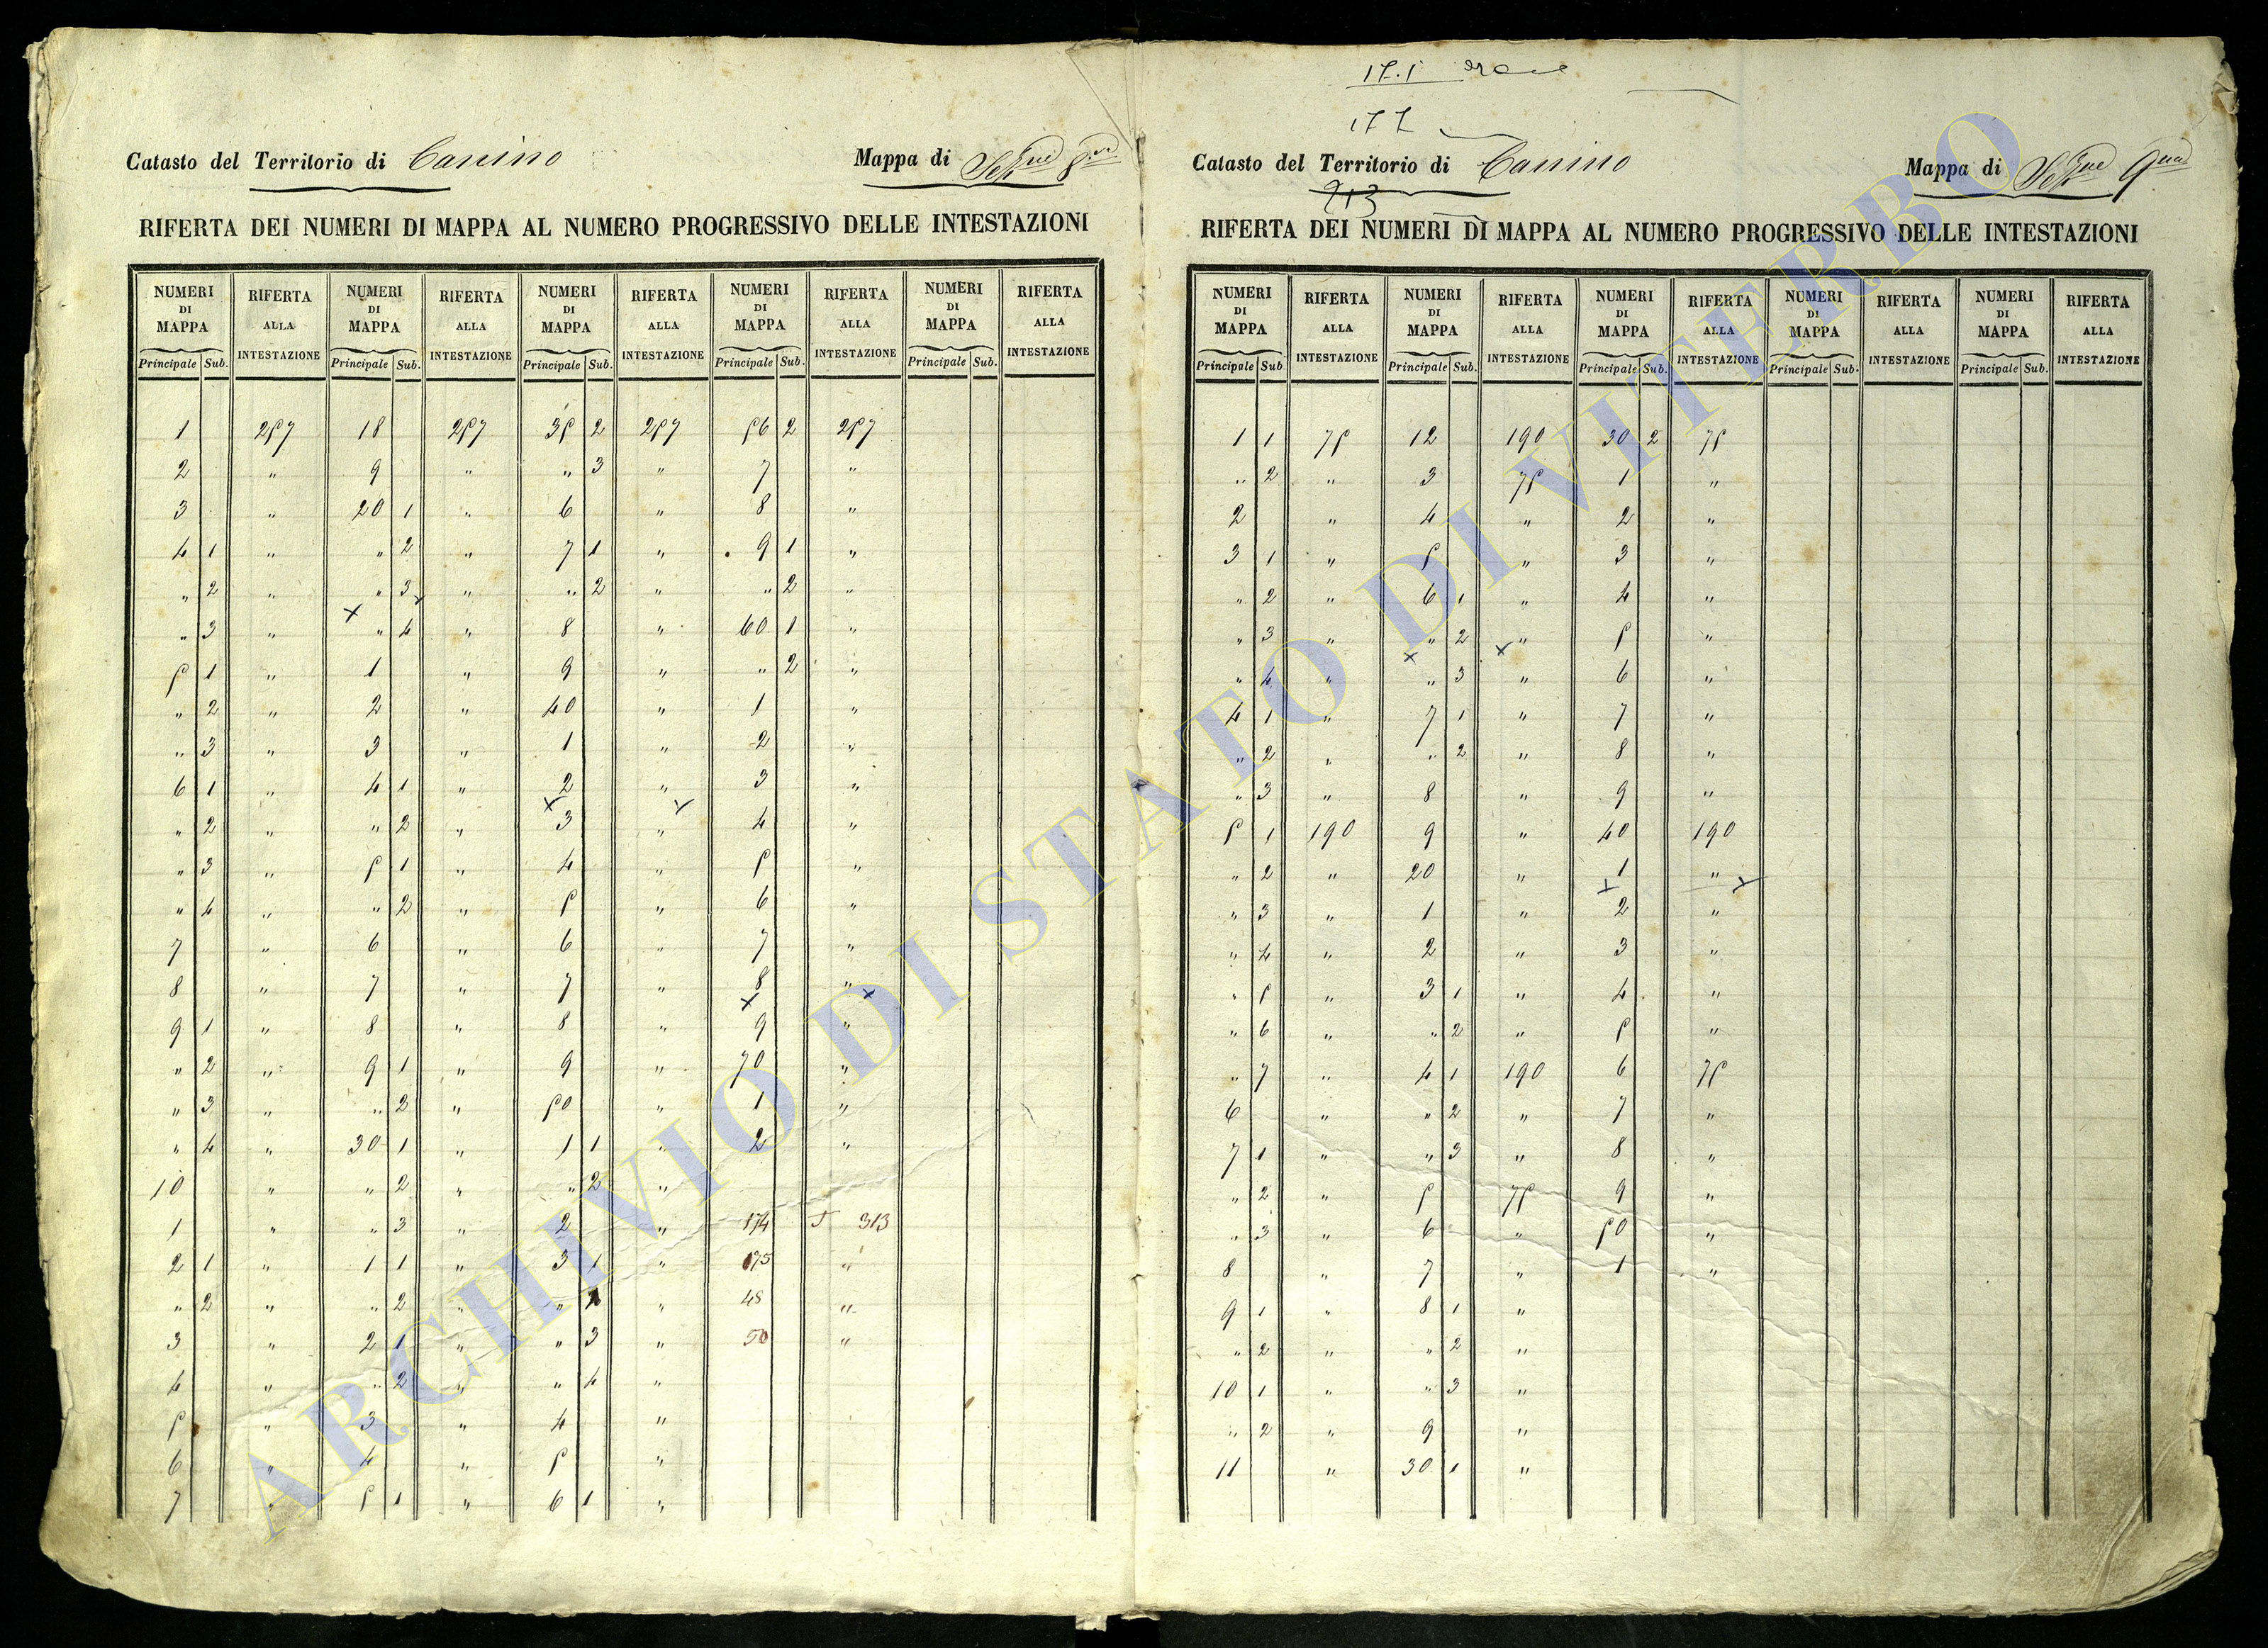 Catasto del Territorio di Canino Mappa di Sez.ne 8.va
RIFERTA DEI NUMERI DI MAPPA AL NUMERO PROGRESSIVO DELLE INTESTAZIONI
NUMERI DI MAPPA RIFERTA ALLA INTESTAZIONE NUMERI DI MAPPA RIFERTA ALLA INTESTAZIONE NUMERI DI MAPPA RIFERTA ALLA INTESTAZIONE NUMERI DI MAPPA RIFERTA ALLA INTESTAZIONE NUMERI DI MAPPA RIFERTA ALLA INTESTAZIONE
Principale Sub. Principale Sub. Principale Sub. Principale Sub. Principale Sub.
1 257 18 257 35 2 257 56 2 257
2 " 9 " " 3 " 7 "
3 " 20 1 " 6 " 8 "
4 1 " " 2 " 7 1 " 9 1 "
" 2 " " 3 " " 2 " " 2 "
" 3 " " 4 " 8 " 60 1 "
5 1 " 1 " 9 " " 2 "
" 2 " 2 " 40 " 1 "
" 3 " 3 " 1 " 2 "
6 1 " 4 1 " 2 " 3 "
" 2 " " 2 " 3 " 4 "
" 3 " 5 1 " 4 " 5 "
" 4 " " 2 " 5 " 6 "
7 " 6 " 6 " 7 "
8 " 7 " 7 " 8 "
9 1 " 8 " 8 " 9 "
" 2 " 9 1 " 9 " 70 "
" 3 " " 2 " 50 " 1 "
" 4 " 30 1 " 1 1 " 2 "
10 " " 2 " " 2 "
1 " " 3 " 2 " 174 T 313
2 1 " 1 1 " 3 1 " 175 "
" 2 " " 2 " " 2 " 48 "
3 " 2 1 " " 3 " 50 "
4 " " 2 " " 4 "
5 " 3 " 4 "
6 " 4 " 5 "
7 " 5 1 " 6 1 "
17.1
177
Catasto del Territorio di Canino Mappa di Sez.ne 9.na
913
RIFERTA DEI NUMERI DI MAPPA AL NUMERO PROGRESSIVO DELLE INTESTAZIONI
NUMERI DI MAPPA RIFERTA ALLA INTESTAZIONE NUMERI DI MAPPA RIFERTA ALLA INTESTAZIONE NUMERI DI MAPPA RIFERTA ALLA INTESTAZIONE NUMERI DI MAPPA RIFERTA ALLA INTESTAZIONE NUMERI DI MAPPA RIFERTA ALLA INTESTAZIONE
Principale Sub. Principale Sub. Principale Sub. Principale Sub. Principale Sub.
1 1 75 12 190 30 2 75
" 2 " 3 75 1 "
2 " 4 " 2 "
3 1 " 5 " 3 "
" 2 " 6 1 " 4 "
" 3 " " 2 " 5 "
" 4 " " 3 " 6 "
4 1 " 7 1 " 7 "
" 2 " " 2 " 8 "
" 3 " 8 " 9 "
5 1 190 9 " 40 190
" 2 " 20 " 1 "
" 3 " 1 " 2 "
" 4 " 2 " 3 "
" 5 " 3 1 " 4 "
" 6 " " 2 " 5 "
" 7 " 4 1 190 6 75
6 " " 2 " 7 "
7 1 " " 3 " 8 "
" 2 " 5 75 9 "
" 3 " 6 " 50 "
8 " 7 " 1 "
9 1 " 8 1 "
" 2 " " 2 "
10 1 " " 3 "
" 2 " 9 "
11 " 30 1 "
ARCHIVIO DI STATO DI VITERBO